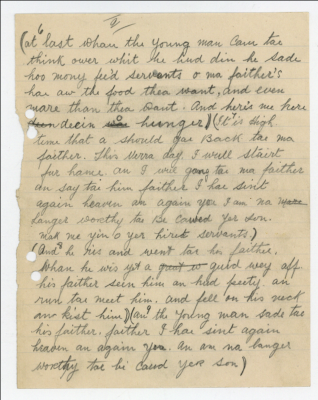 V
6
(at last whan the young man cam tae
think ower whit he hud din he sade
hoo mony fee'd servants o ma faither's
hae aw the food thea want, and even
mare than thea want. And here's me here
deein wi hunger) (7It is high
time that a should gae Back tae ma
faither. This verra day I wull stairt
fur hame. an I wul gang tae ma faither
an say tae him faither I hae sint
again heaven an again yer I am na mare
langer worthy tae Be cawed yer son.
mak me yin o yer hired servants.)
(And8 he ris and went tae his faither.
Whan he wis yit a guid wey off
his faither sein him an hud peety. an
run tae meet him. and fell on his neck
an kist him) (an9 the young man sade tae
his faither. faither I hae sint again
heaven an again yer. An am na langer
worthy tae bi cawd yer son)